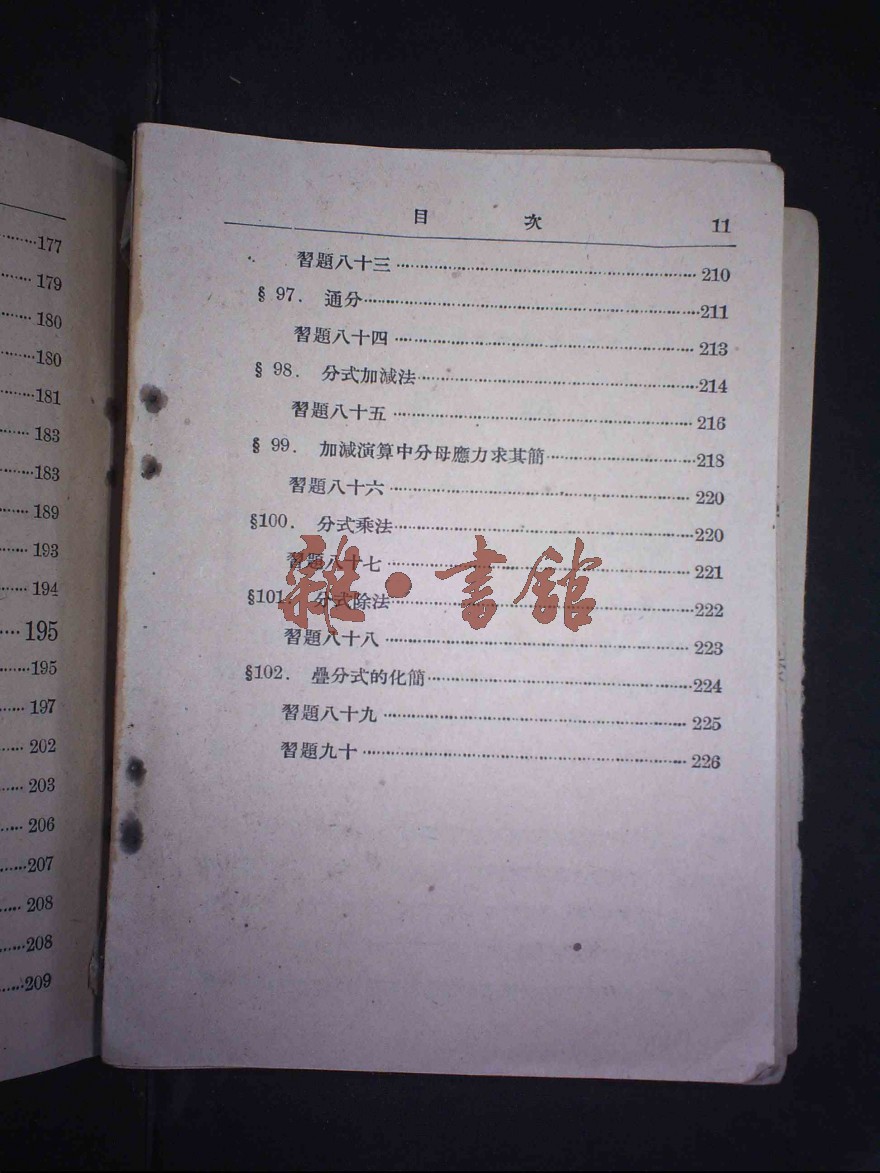 177
179
180
180
181
183
183
189
193
194
195
195
197
202
203
206
207
208
208
209
目 次 11
習題八十三 210
§ 97. 通分 211
習題八十四 213
§ 98. 分式加減法 214
習題八十五 216
§ 99. 加減演算中分母應力求其簡 218
習題八十六 220
§100. 分式乘法 220
習題八十七 221
§101. 分式除法 222
習題八十八 223
§102. 疊分式的化簡 224
習題八十九 225
習題九十 226
雜·書館